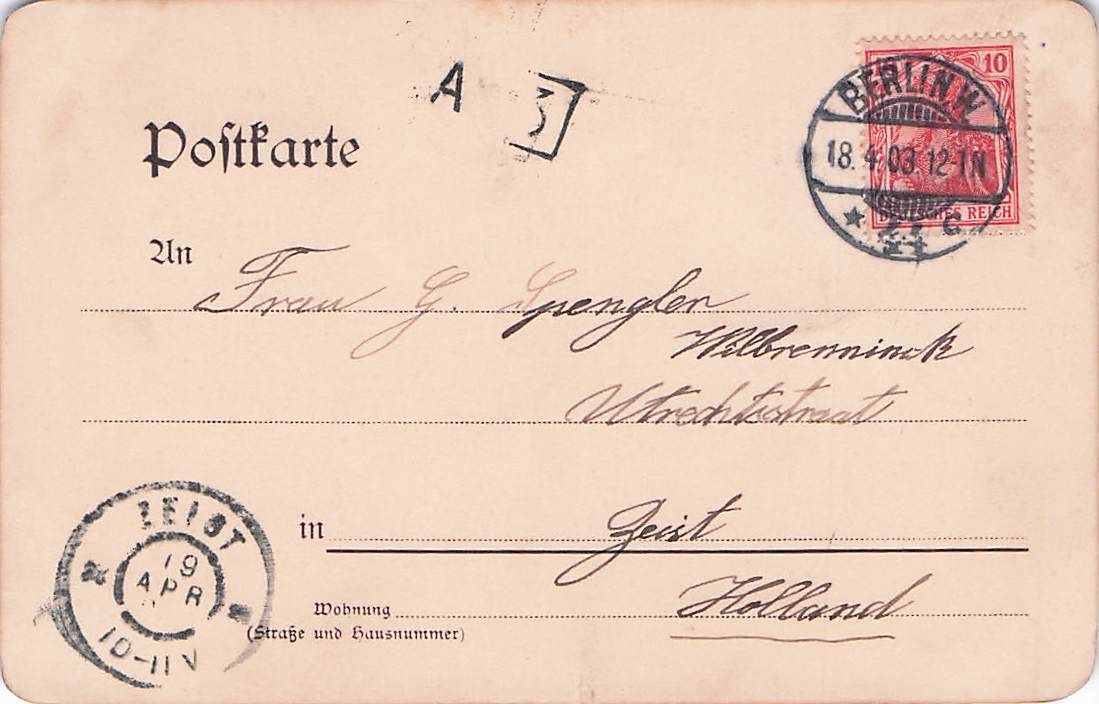 A 3
10
BERLIN.W
18.4.03.12-1N
DEUTSCHES REICH
Poſtkarte
An
Frau G. Spengler
Wilbrenninck
Utrechtsstraat
ZEIST
19
APR
10-11V
in Zeist
Wohnung Holland
(Straße und Hausnummer)